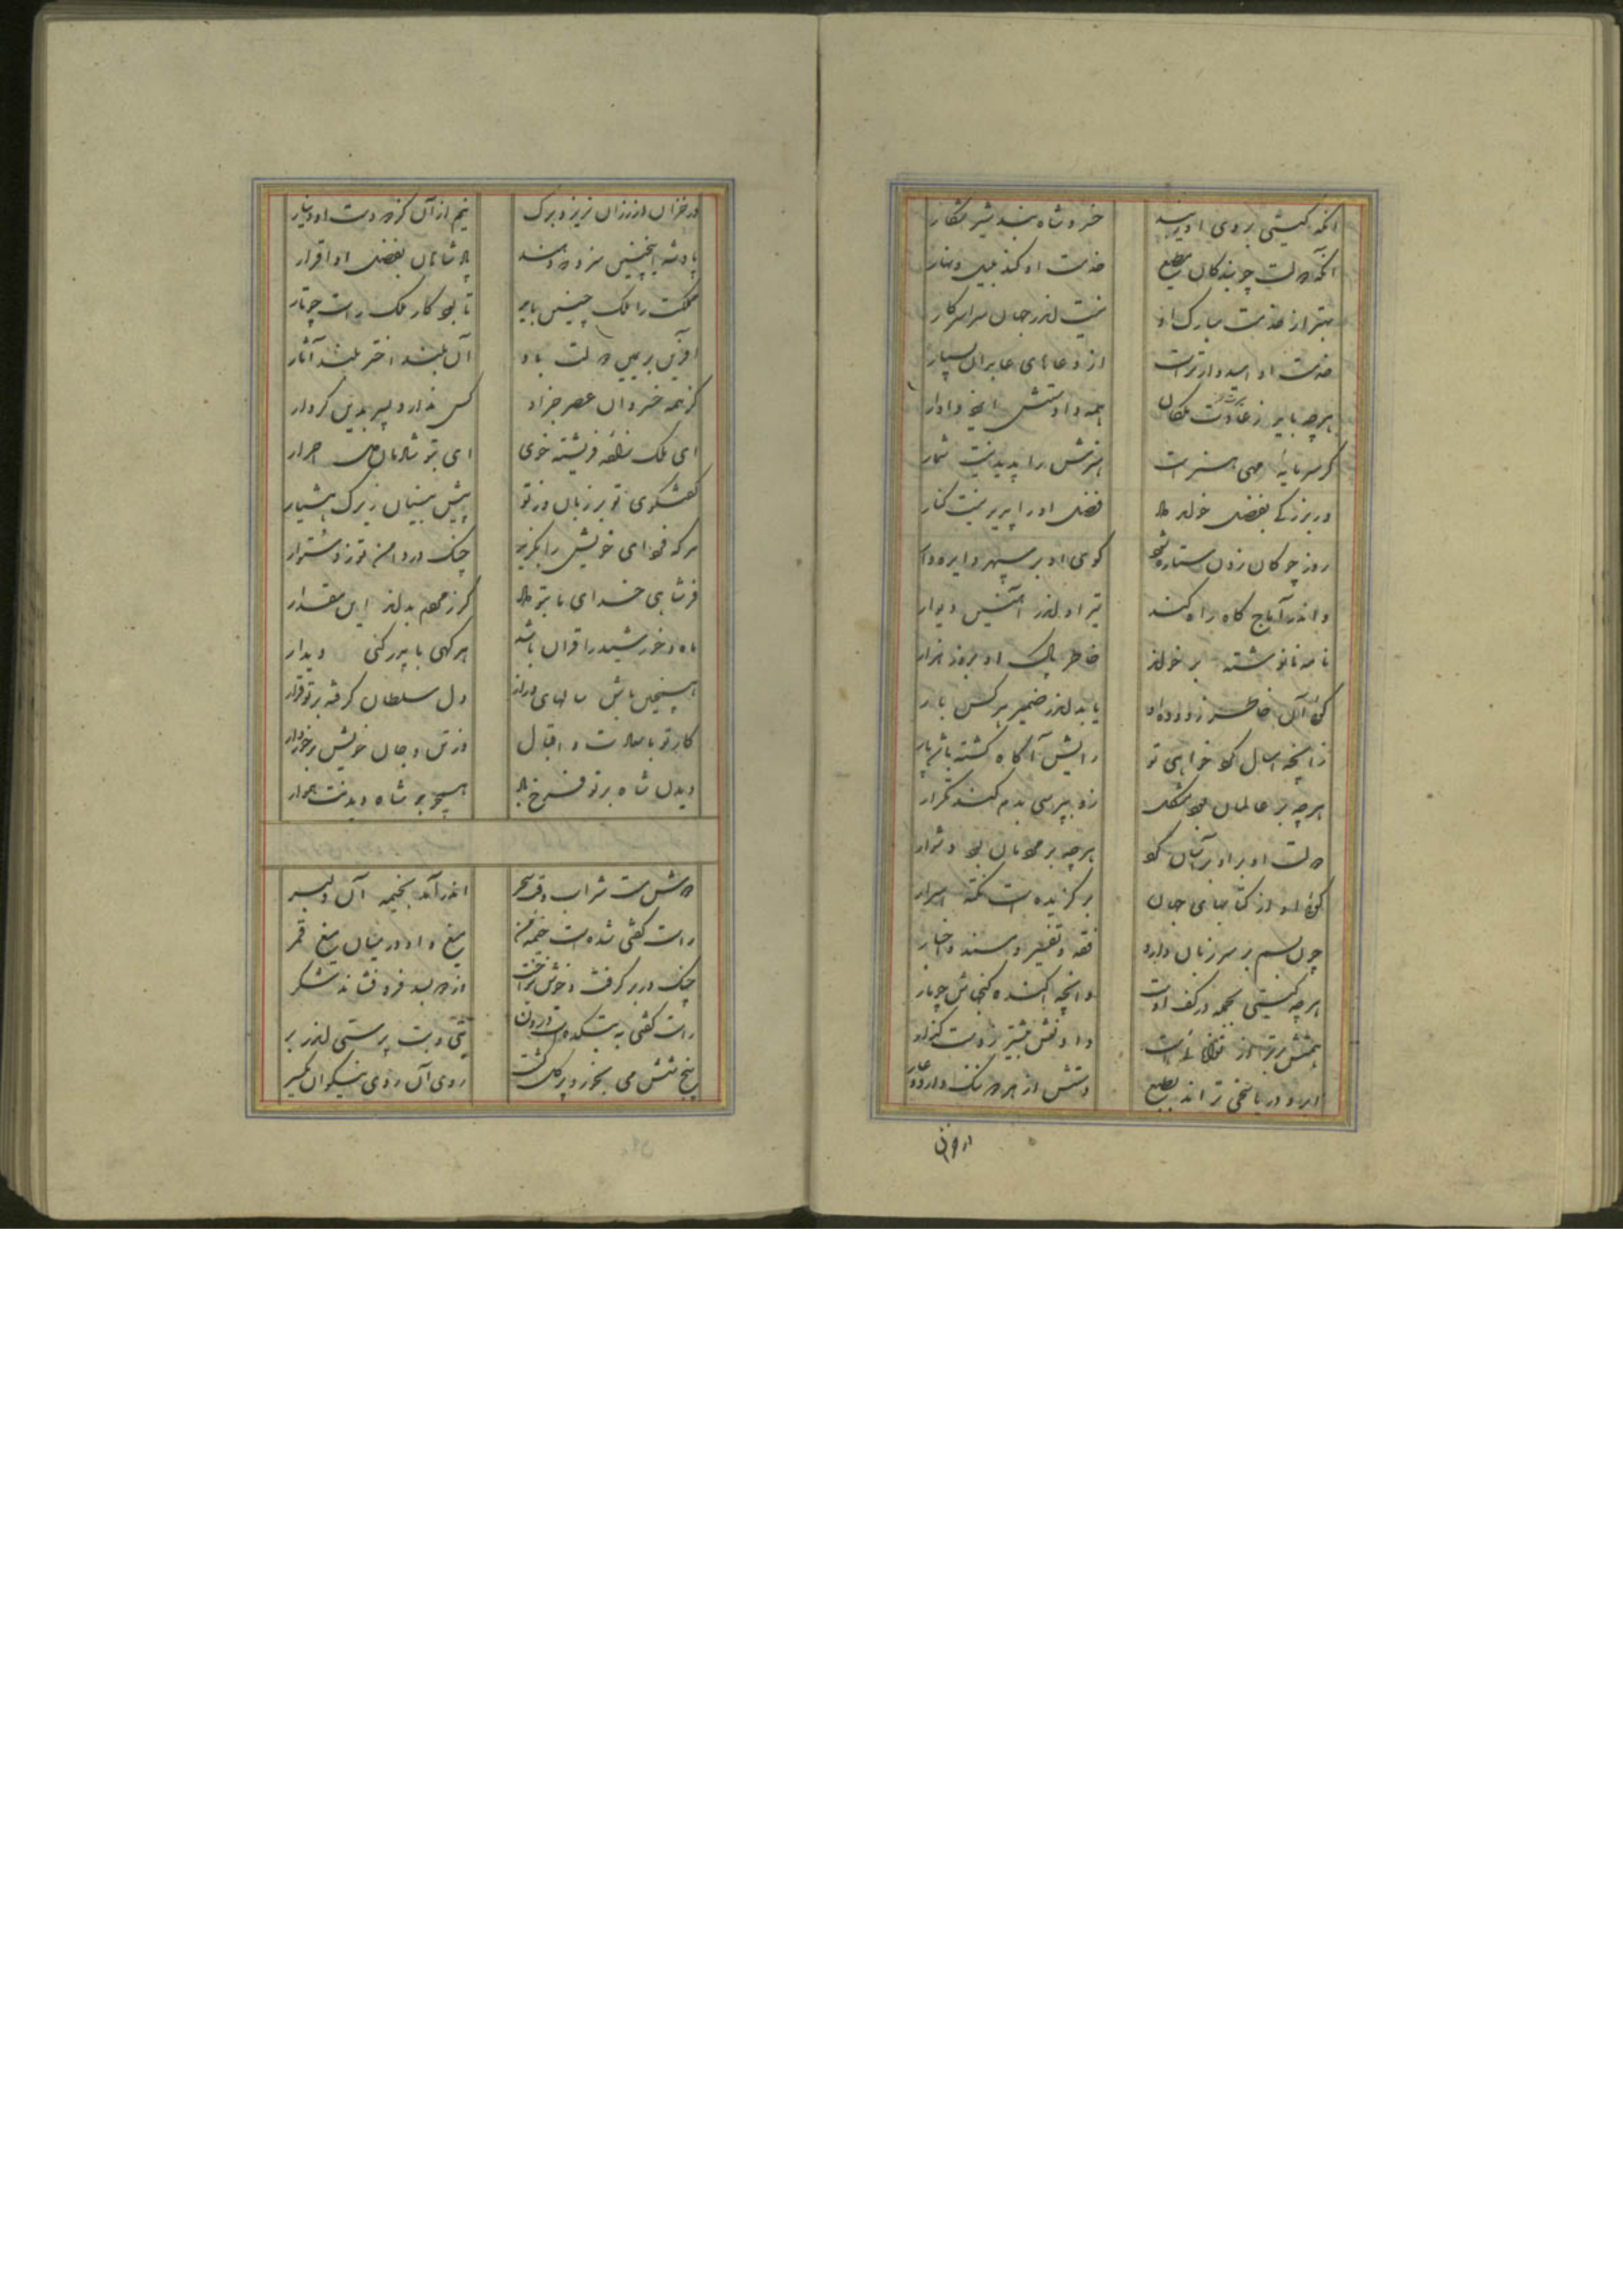 آنکه گیتی بروی او بیند خسرو شاه بند شیر شکار
آنکه دولت چو بندگان مطیع خدمت او کند بلیل و نهار
بهتر از خدمت مبارک او نیست اندر جهان سراسر کار
خدمت او امیدوارتر است از دعاهای عابران بسیار
هرچه باید ز عادت نیکان همه دادستش ایزد دادار
گر سرمایه مهی هنر است هنرش را پدید نیست شمار
ور بزرگی بفضل خواهد بود فضل او را پدید نیست کنار
روز چوگان زدن ستاره شود گوی او بر سپهر دایره وار
و اندر آماج گاه راه کند تیر او اندر آهنین دیوار
نامه نانوشته بر خواند خاطر پاک او بروز هزار
گوئی آن خاطر زدوده او یابد اندر ضمیر هر کس بار
زانچه امسال کرد خواهی تو رایش آگاه گشته باشد پار
هرچه بر عالمان بود مشکل زو بپرسی بدم کند تکرار
دولت او بر او بر آسان کرد هرچه بر مردمان بود دشوار
گوئی او از کتابهای جهان بر گزیده است نکته اسرار
چون بسم بر سر زبان دارد فقه و تفسیر و مسند و اخبار
هرچه گیتی همه در کف اوست وانچه آکنده گنجهاش چو پار
همتش برتر از توانائی است دادنش بیشتر ز دست گذار
ابر و دریا سخی تراند بطبع دستش از هر دو ننگ دارد و عار
در خزان
در خزان از رزان نریزد برگ نیم از آن کز دو دست او دینار
پادشه اینچنین سزد دانند پادشاهان بفضل او اقرار
مملکت را ملک چنین باید تا بود کار ملک راست چو تار
آفرین بر یمین دولت باد آن بلند اختر بلند آثار
کز همه خسروان عصر جز او کس ندارد پسر بدین کردار
ای ملک زاده فریشته خوی ای بتو شادمان دل احرار
گفتگوی تو بر زبان دارند پیش بینان زیرک هشیار
هر که خواهی خویش را نگرید چنگ در دامن تو زد ستوار
فر شاهی خدای با تو داد کز مهم بداند این مقدار
ماه و خورشید را قران باشد هر گهی با پدر کنی دیدار
همچنین باش سالهای دراز دل سلطان گرفته بر تو قرار
کار تو با سعادت و اقبال وز تن و جان خویش برخوردار
دیدن شاه بر تو فرخ باد همچو بر شاه دیدنت هموار
دوش مست شراب وقت سحر اندر آمد بخیمه آن دلبر
راست گفتی شده است خیمه من میغ و او در میان میغ قمر
چنگ در بر گرفت و خوش بنواخت از دو بسد فرو فشاند شکر
راست گفتی به بتکده است درون بتی و بت پرستی اندر بر
پنج شش می بخورد و پر گل گشت روی آن روی نیکوان یکسر